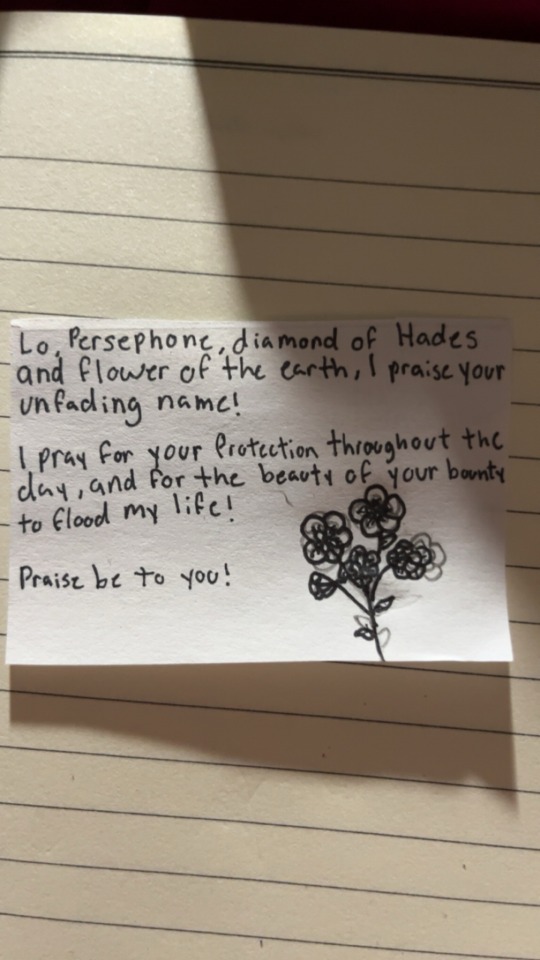 Lo, Persephone, diamond of Hades
and flower of the earth, I praise your
unfading name!
I pray for your Protection throughout the
day, and for the beauty of your bounty
to flood my life!
Praise be to you!